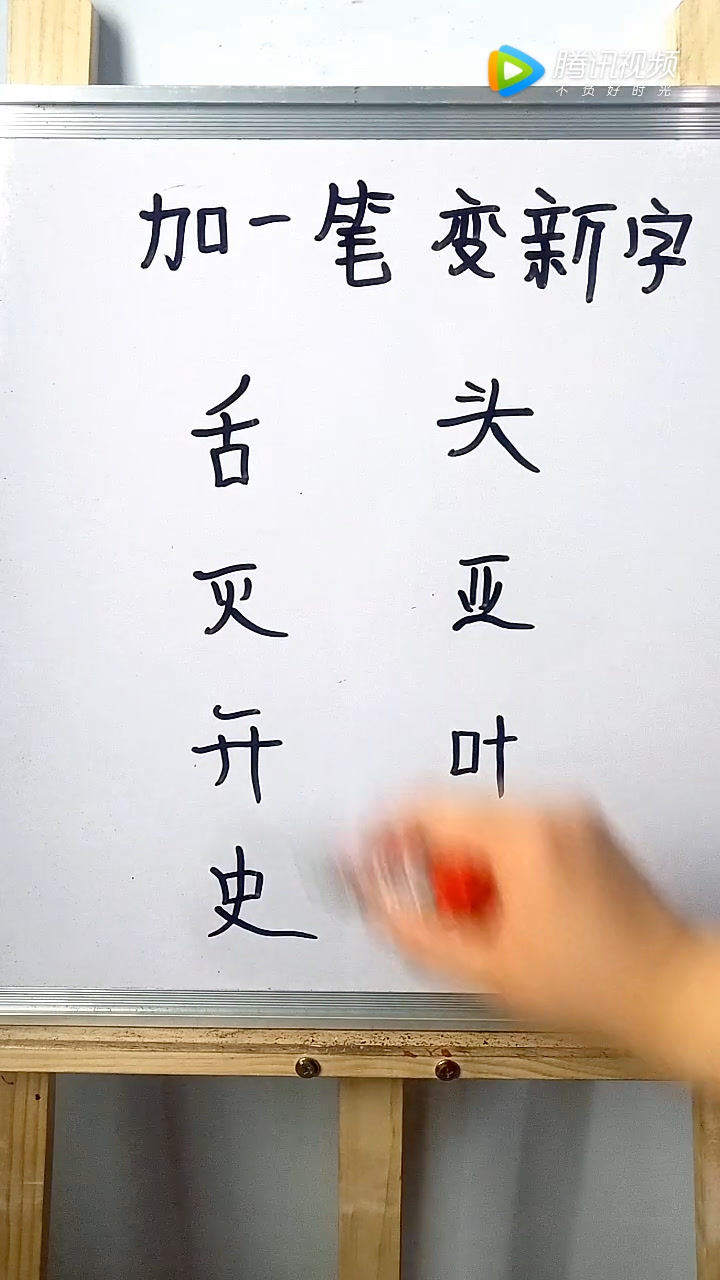 腾讯视频
不负好时光
加一笔 变新字
舌 头
灭 亚
开 叶
史